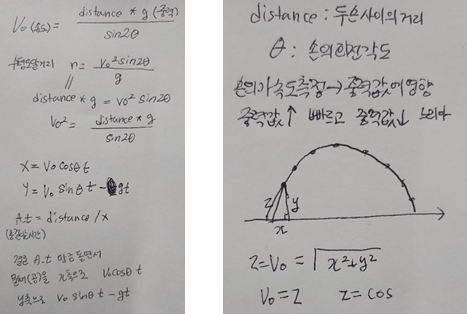 V₀(속도) = distance * g (중력) / sin2θ
수평도달거리 r = v₀² sin2θ / g
distance * g = v₀² sin2θ
V₀² = distance * g / sin2θ
X = V₀ cosθ t
Y = V₀ sinθ t - gt
A.t = distance / x
결국 A.t 만큼
x축으로 V₀cosθ t
y축으로 V₀ sinθ t - gt
distance : 두손사이의 거리
θ : 손의 회전각도
손의 가속도측정 → 중력값에 영향
중력값 ↑ 빠르고 중력값 ↓ 느리다
z y
x
Z = V₀ = √x² + y²
V₀ = Z Z = cos